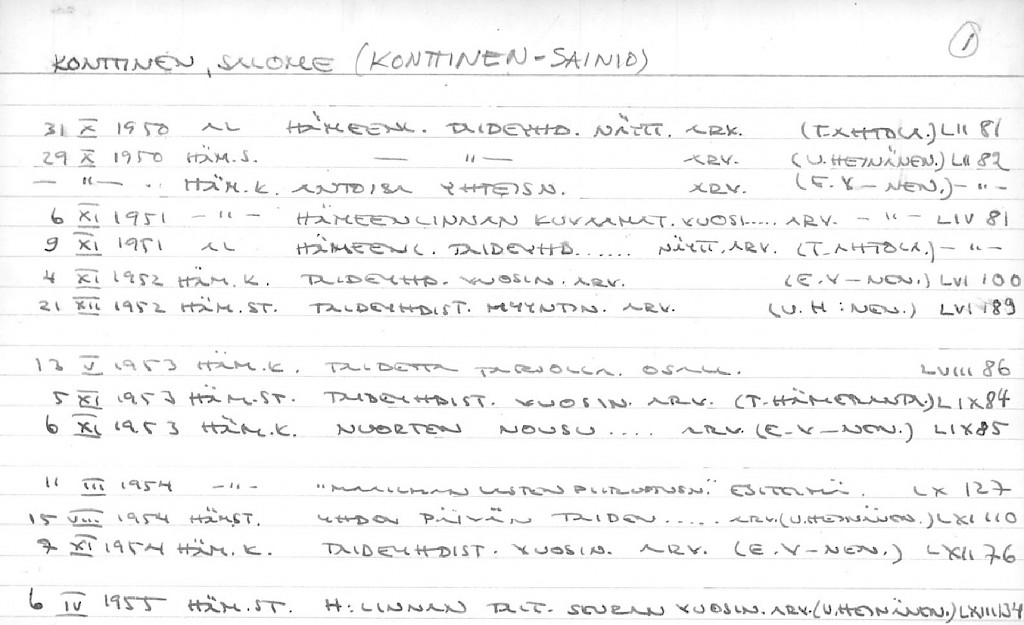 1
KONTTINEN, SALOME (KONTTINEN-SAINIO)
31 X 1950 AL HÄMEENL. TAIDEYHD. NÄYTT. ARV. (T. AHTOLA.) LII 81
29 X 1950 HÄM.S. — " — ARV. (U. HEINÄNEN.) LII 82
— " — .. HÄM.K. ANTOISA YHTEISN. ARV. (E.V—NEN.) — " —
6 XI 1951 — " — HÄMEENLINNAN KUVAAMAT. VUOSI..... ARV. — " — LIV 81
9 XI 1951 AL HÄMEENL. TAIDEYHD...... NÄYTT. ARV. (T. AHTOLA.) — " —
4 XI 1952 HÄM.K. TAIDEYHD. VUOSIN. ARV. (E.V—NEN.) LVI 100
21 XII 1952 HÄM.ST. TAIDEYHDIST. MYYNTIN. ARV. (U. H:NEN.) LVI 189
13 V 1953 HÄM.K. TAIDETTA TARJOLLA. OSALL. LVIII 86
5 XI 1953 HÄM.ST. TAIDEYHDIST. VUOSIN. ARV. (T. HÄMERANTA.) LIX 84
6 XI 1953 HÄM.K. NUORTEN NOUSU .... ARV. (E.V—NEN.) LIX 85
11 III 1954 — " — "MAAILMAN LASTEN PIIRUSTUSN." ESITELMÄ. LX 127
15 VIII 1954 HÄM.ST. YHDEN PÄIVÄN TAIDEN..... ARV. (U. HEINÄNEN.) LXI 110
7 XI 1954 HÄM.K. TAIDEYHDIST. VUOSIN. ARV. (E.V—NEN.) LXII 76
6 IV 1955 HÄM.ST. H:LINNAN TAIT. SEURAN VUOSIN. ARV. (U. HEINÄNEN.) LXIII 34